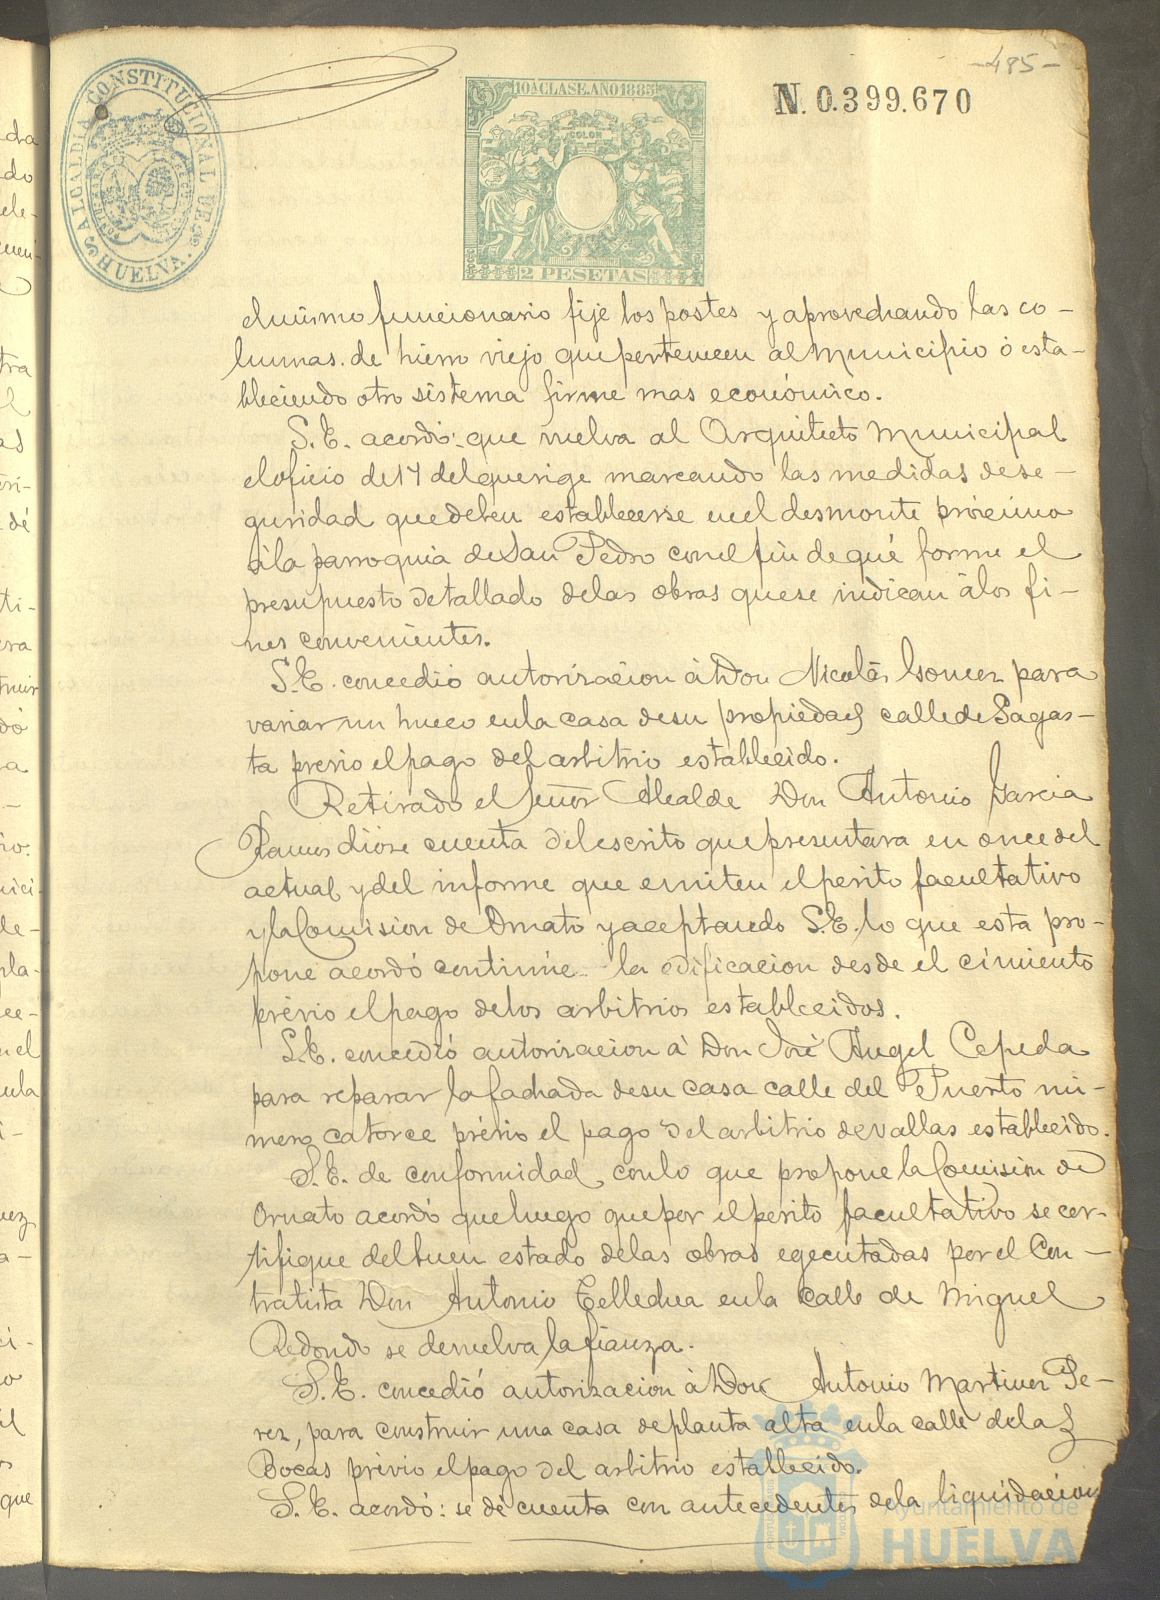 -485-
ALCALDIA CONSTITUCIONAL DE HUELVA.
10ª CLASE. AÑO 1885
COLON
2 PESETAS
N. 0.399.670
el mismo funcionario fije los postes y aprovechando las co-
lumnas de hierro viejo que pertenecen al Municipio ó esta-
bleciendo otro sistema firme mas económico.
S.E. acordó: que vuelva al Arquitecto Municipal
el oficio de 17 del que rige marcando las medidas de se-
guridad que deben establecerse en el desmonte próximo
á la parroquia de San Pedro con el fin de que forme el
presupuesto detallado de las obras que se indican á los fi-
nes convenientes.
S.E. concedió autorizacion á Don Nicolás Gomez para
variar un hueco en la casa de su propiedad calle de Sagas-
ta previo el pago del arbitrio establecido.
Retirado el Señor Alcalde Don Antonio Garcia
Ramos diose cuenta del escrito que presentara en once del
actual y del informe que emiten el perito facultativo
y la Comision de Ornato y aceptando S.E. lo que esta pro-
pone acordó continúe la edificacion desde el cimiento
prévio el pago de los arbitrios establecidos.
S.E. concedió autorizacion á Don José Angel Cepeda
para reparar la fachada de su casa calle del Puerto nú-
mero catorce prévio el pago del arbitrio de vallas establecido.
S.E. de conformidad con lo que propone la Comisión de
Ornato acordó que luego que por el perito facultativo se cer-
tifique del buen estado de las obras egecutadas por el Con-
tratista Don Antonio Tellechea en la calle de Miguel
Redondo se devuelva la fianza.
S.E. concedió autorizacion á Don Antonio Martinez Pe-
rez, para construir una casa de planta alta en la calle de las
Bocas prévio el pago del arbitrio establecido.
S.E. acordó: se dé cuenta con antecedentes de la liquidación
Ayuntamiento de
HUELVA